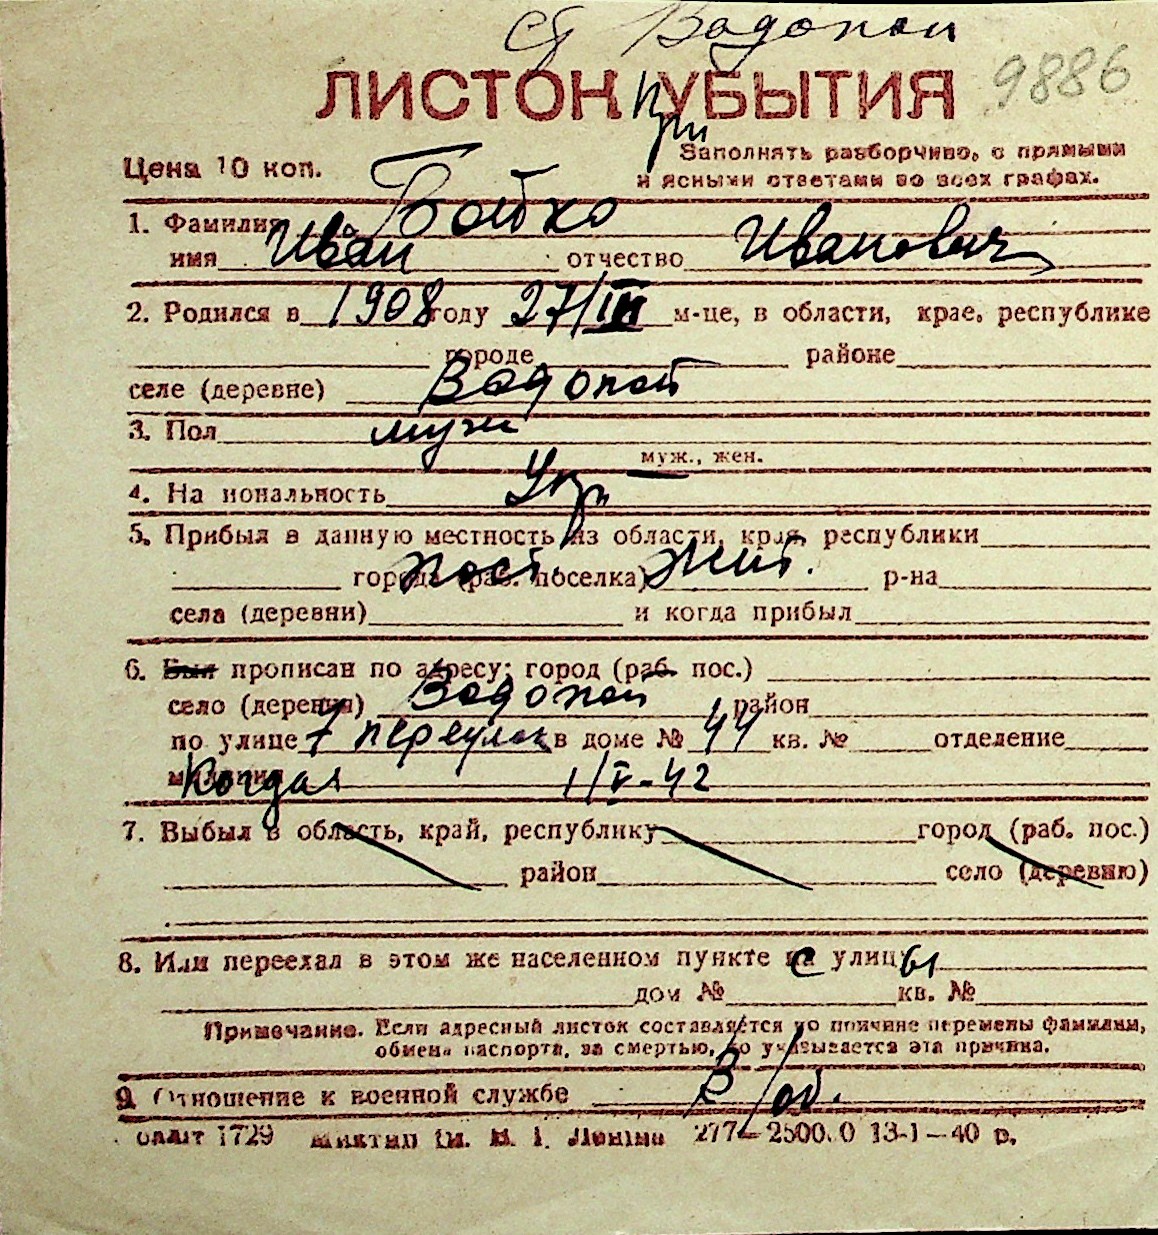 ст Водопой
ЛИСТОК УБЫТИЯ 9886
при
Цена 10 коп. Заполнять разборчиво, с прямыми
и ясными ответами во всех графах.
1. Фамилия Бойко
имя Иван отчество Иванович
2. Родился в 1908 году 27/III м-це, в области, крае, республике
городе районе
селе (деревне) Водопой
3. Пол муж
муж., жен.
4. Национальность Укр
5. Прибыл в данную местность из области, края, республики
города (раб. поселка) р-на
пост. жит.
села (деревни) и когда прибыл
6. Был прописан по адресу: город (раб. пос.)
село (деревня) Водопой район
по улице 7 переулок в доме № 44 кв. № отделение
милиции Когда 1/V-42
7. Выбыл в область, край, республику город (раб. пос.)
район село (деревню)
8. Или переехал в этом же населенном пункте с улицы
дом № кв. №
Примечание. Если адресный листок составляется по причине перемены фамилии,
обмена паспорта, за смертью, то указывается эта причина.
9. Отношение к военной службе В/об.
1729 им. Ленина 277— 13-1—40 р.